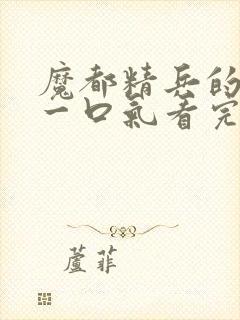 魔都精兵的
一口氣看完
蘆菲